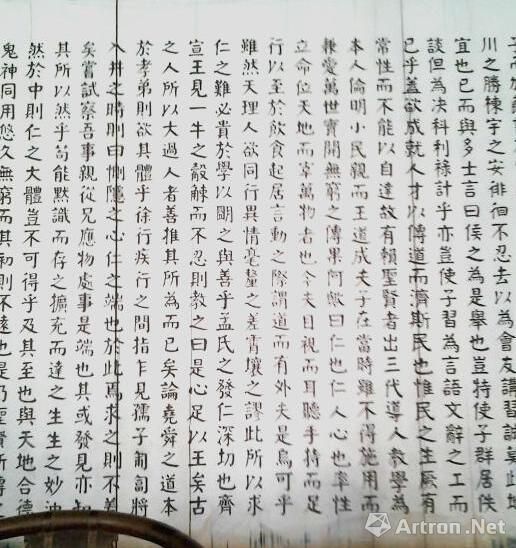 川之勝棟宇之安徘徊不忍去以為會友講習誠莫此地
宜也已而與多士言曰侯之為是舉也豈特使子群居佚
談但為决科利祿計乎亦豈使子習為言語文辭之工而
已乎蓋欲成就人才以傳道而濟斯民也惟民之生厥有
常性而不能以自達故有賴聖賢者出三代導人教學為
本人倫明小民親而王道成夫子在當時雖不得施用而
兼愛萬世實開無窮之傳果何歟曰仁也仁人心也率性
立命位天地而宰萬物者也今夫目視而耳聽手持而足
行以至於飲食起居言動之際謂道而有外夫是烏可乎
雖然天理人欲同行異情毫釐之差霄壤之謬此所以求
仁之難必貴於學以明之與善乎孟氏之發仁深切也齊
宣王見一牛之觳觫而不忍則教之曰是心足以王矣古
之人所以大過人者善推其所為而已矣論堯舜之道本
於孝弟則欲其體乎徐行疾行之間指乍見孺子匍匐將
入井之時則曰惻隱之心仁之端也於此焉求之則不差
矣嘗試察吾事親從兄應物處事是端也其或發見亦知
其所以然乎苟能默識而存之擴充而達之生生之妙油
然於中則仁之大體豈不可得乎及其至也與天地合德
鬼神同用悠久無窮而其和則不遠也是乃聖賢所傳
Artron.Net